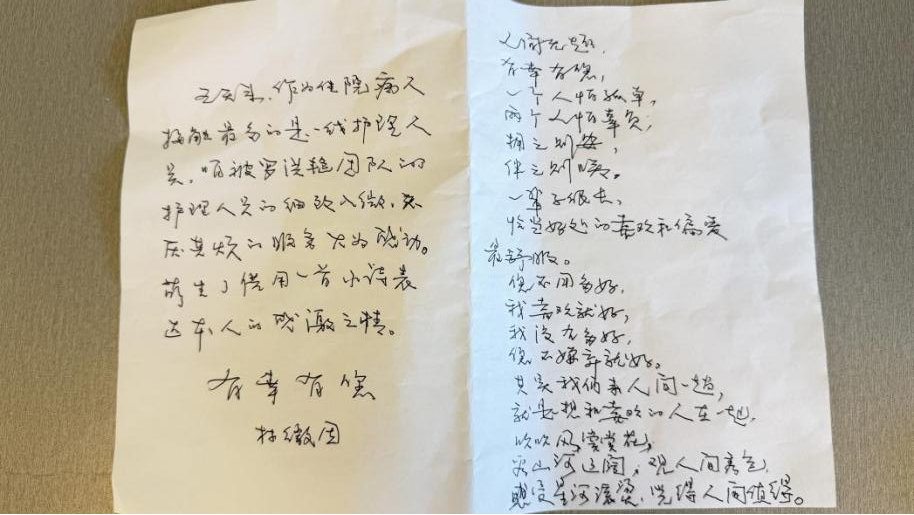 五天来，作为住院病人
接触最多的是一线护理人
员，咱被罗洪穗团队的
护理人员的细致入微，不
厌其烦的服务大为感动。
萌生了借用一首小诗表
达本人的感激之情。
有幸有您
林徽因
人间无题，
有幸有您，
一个人怕孤单，
两个人怕辜负；
拥之则安，
伴之则暖。
一辈子很长，
恰当好处的喜欢和偏爱
最舒服。
您不用多好，
我喜欢就好，
我没有多好，
您不嫌弃就好。
其实我们来人间一趟，
就是想和喜欢的人在一起，
吹吹风，赏赏花，
山河辽阔，观人间春色，
感受星河滚烫，觉得人间值得。